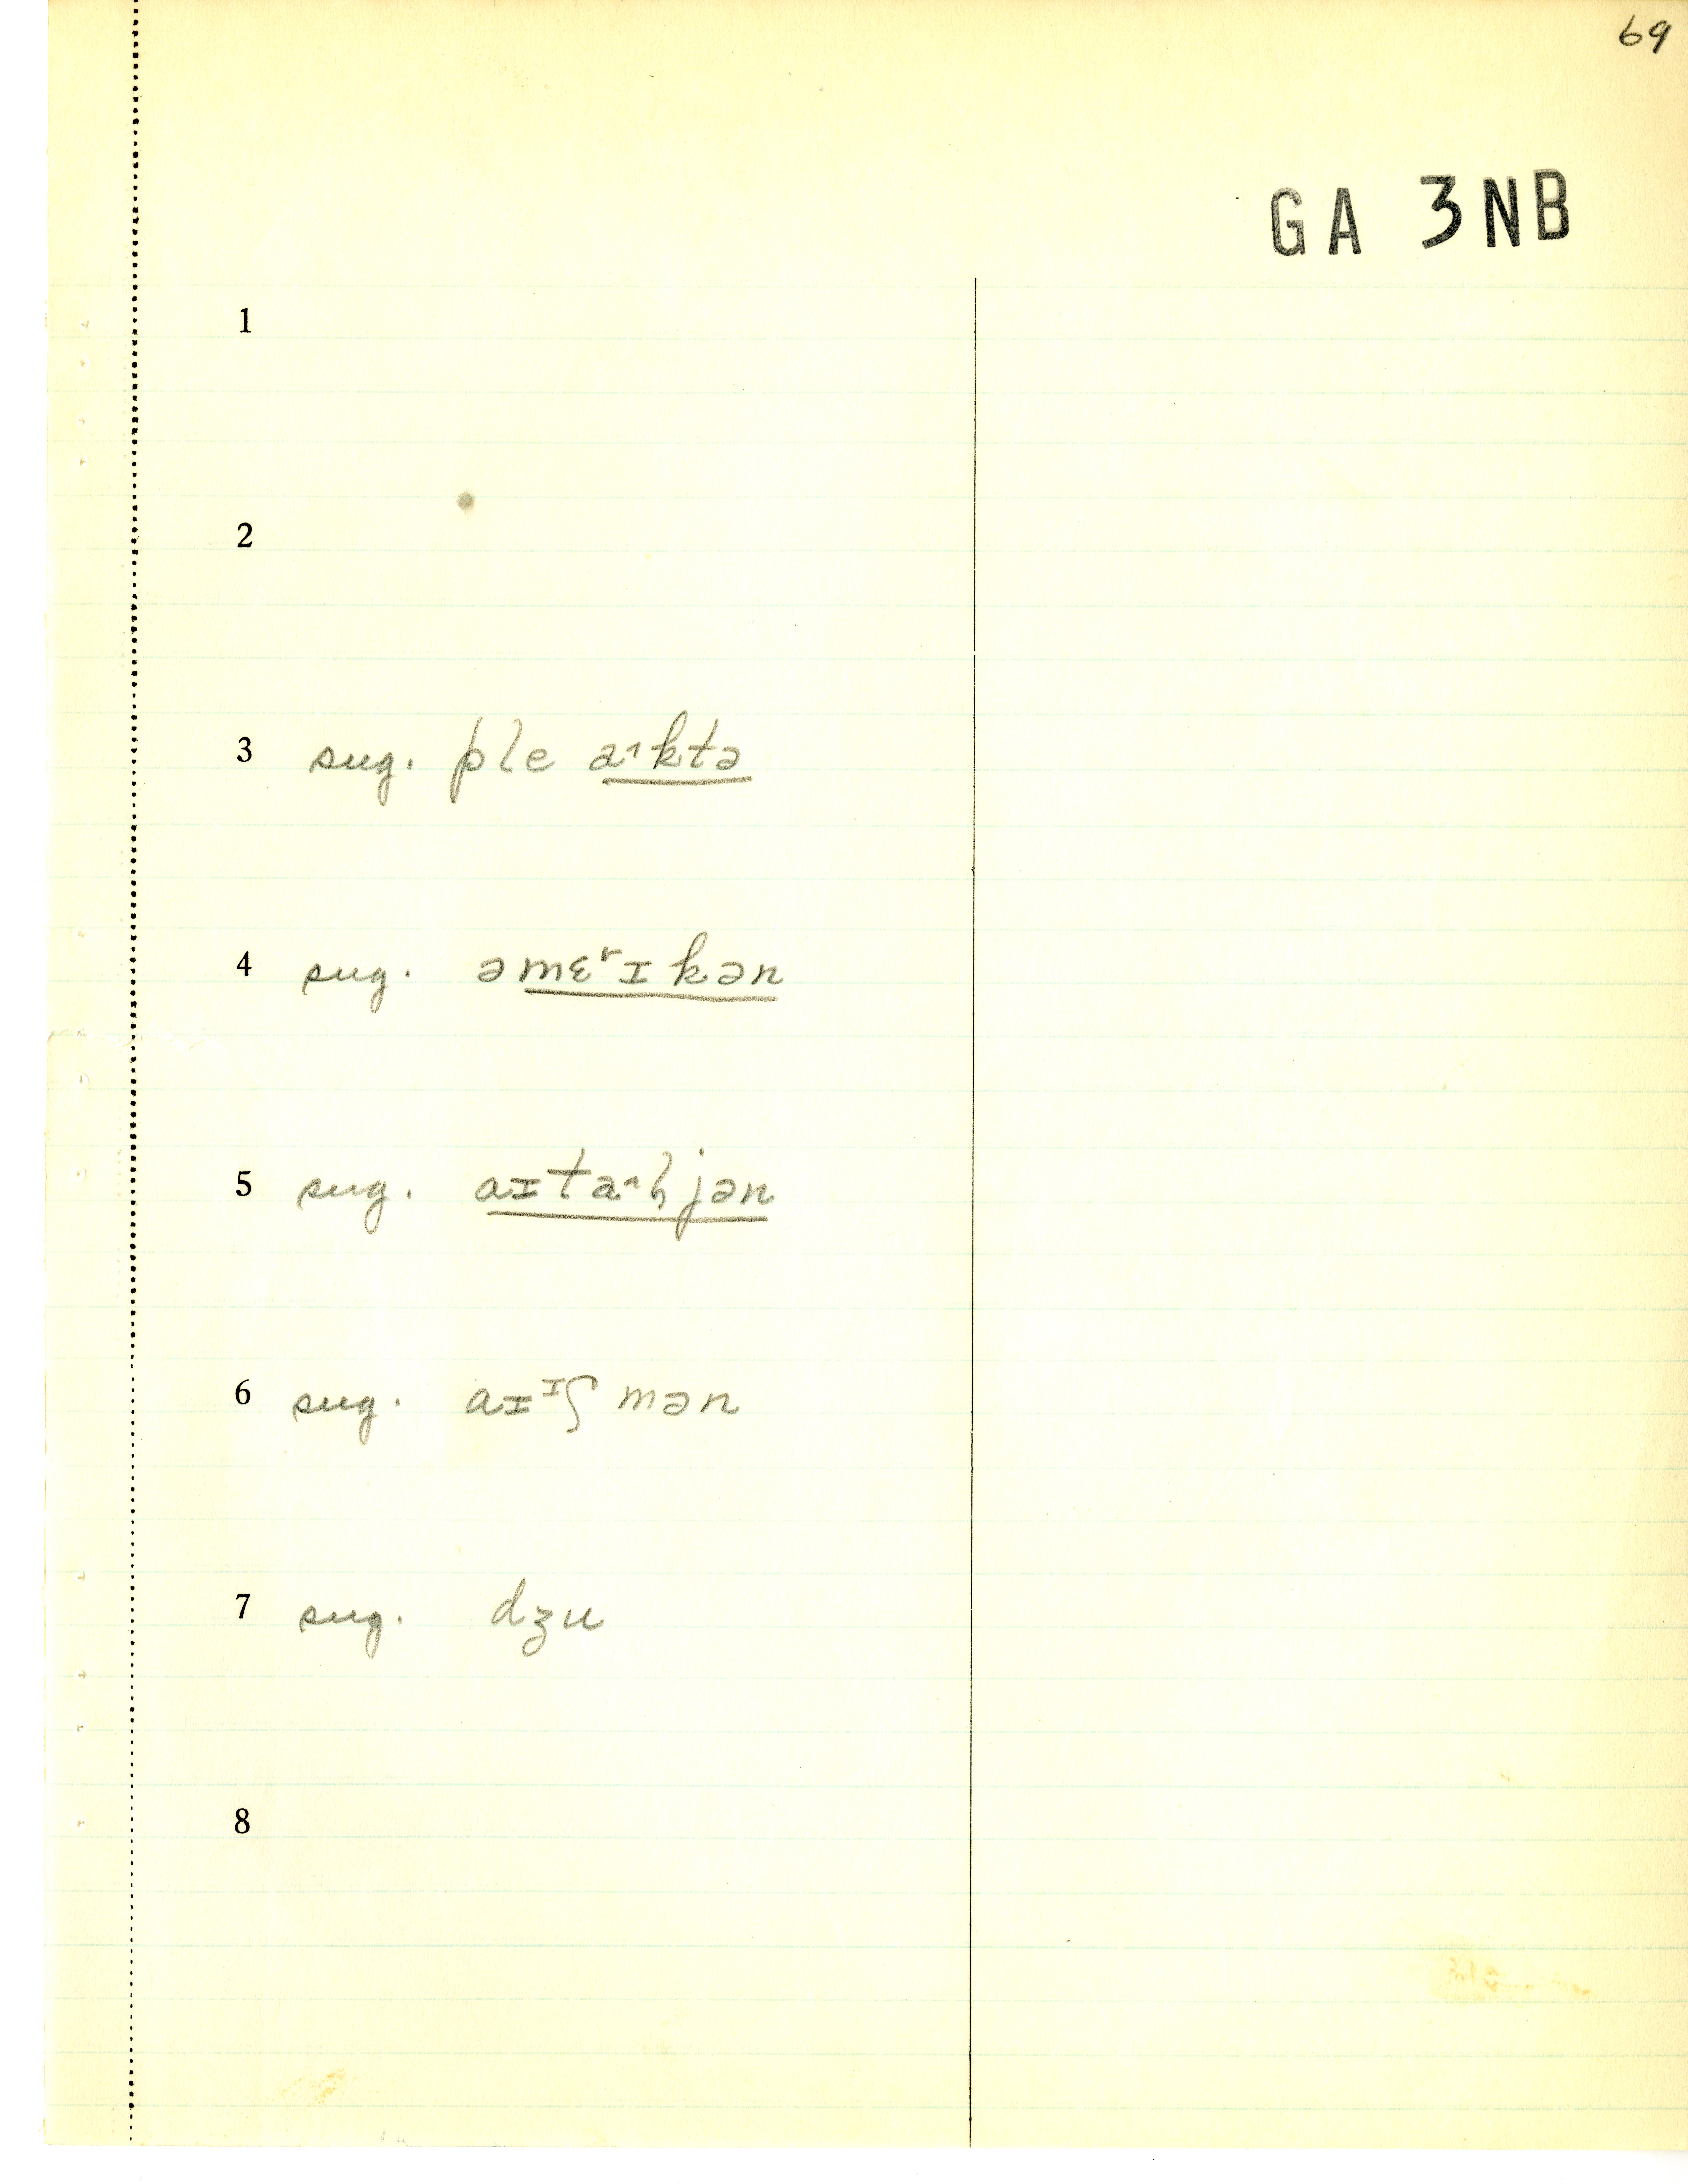 69
GA 3NB
1
2
3 sug. ple a˄ktə
4 sug. əmɛʳɪkən
5 sug. aɪta˄ljən
6 sug. aɪᶦʃmən
7 sug. dʒu
8